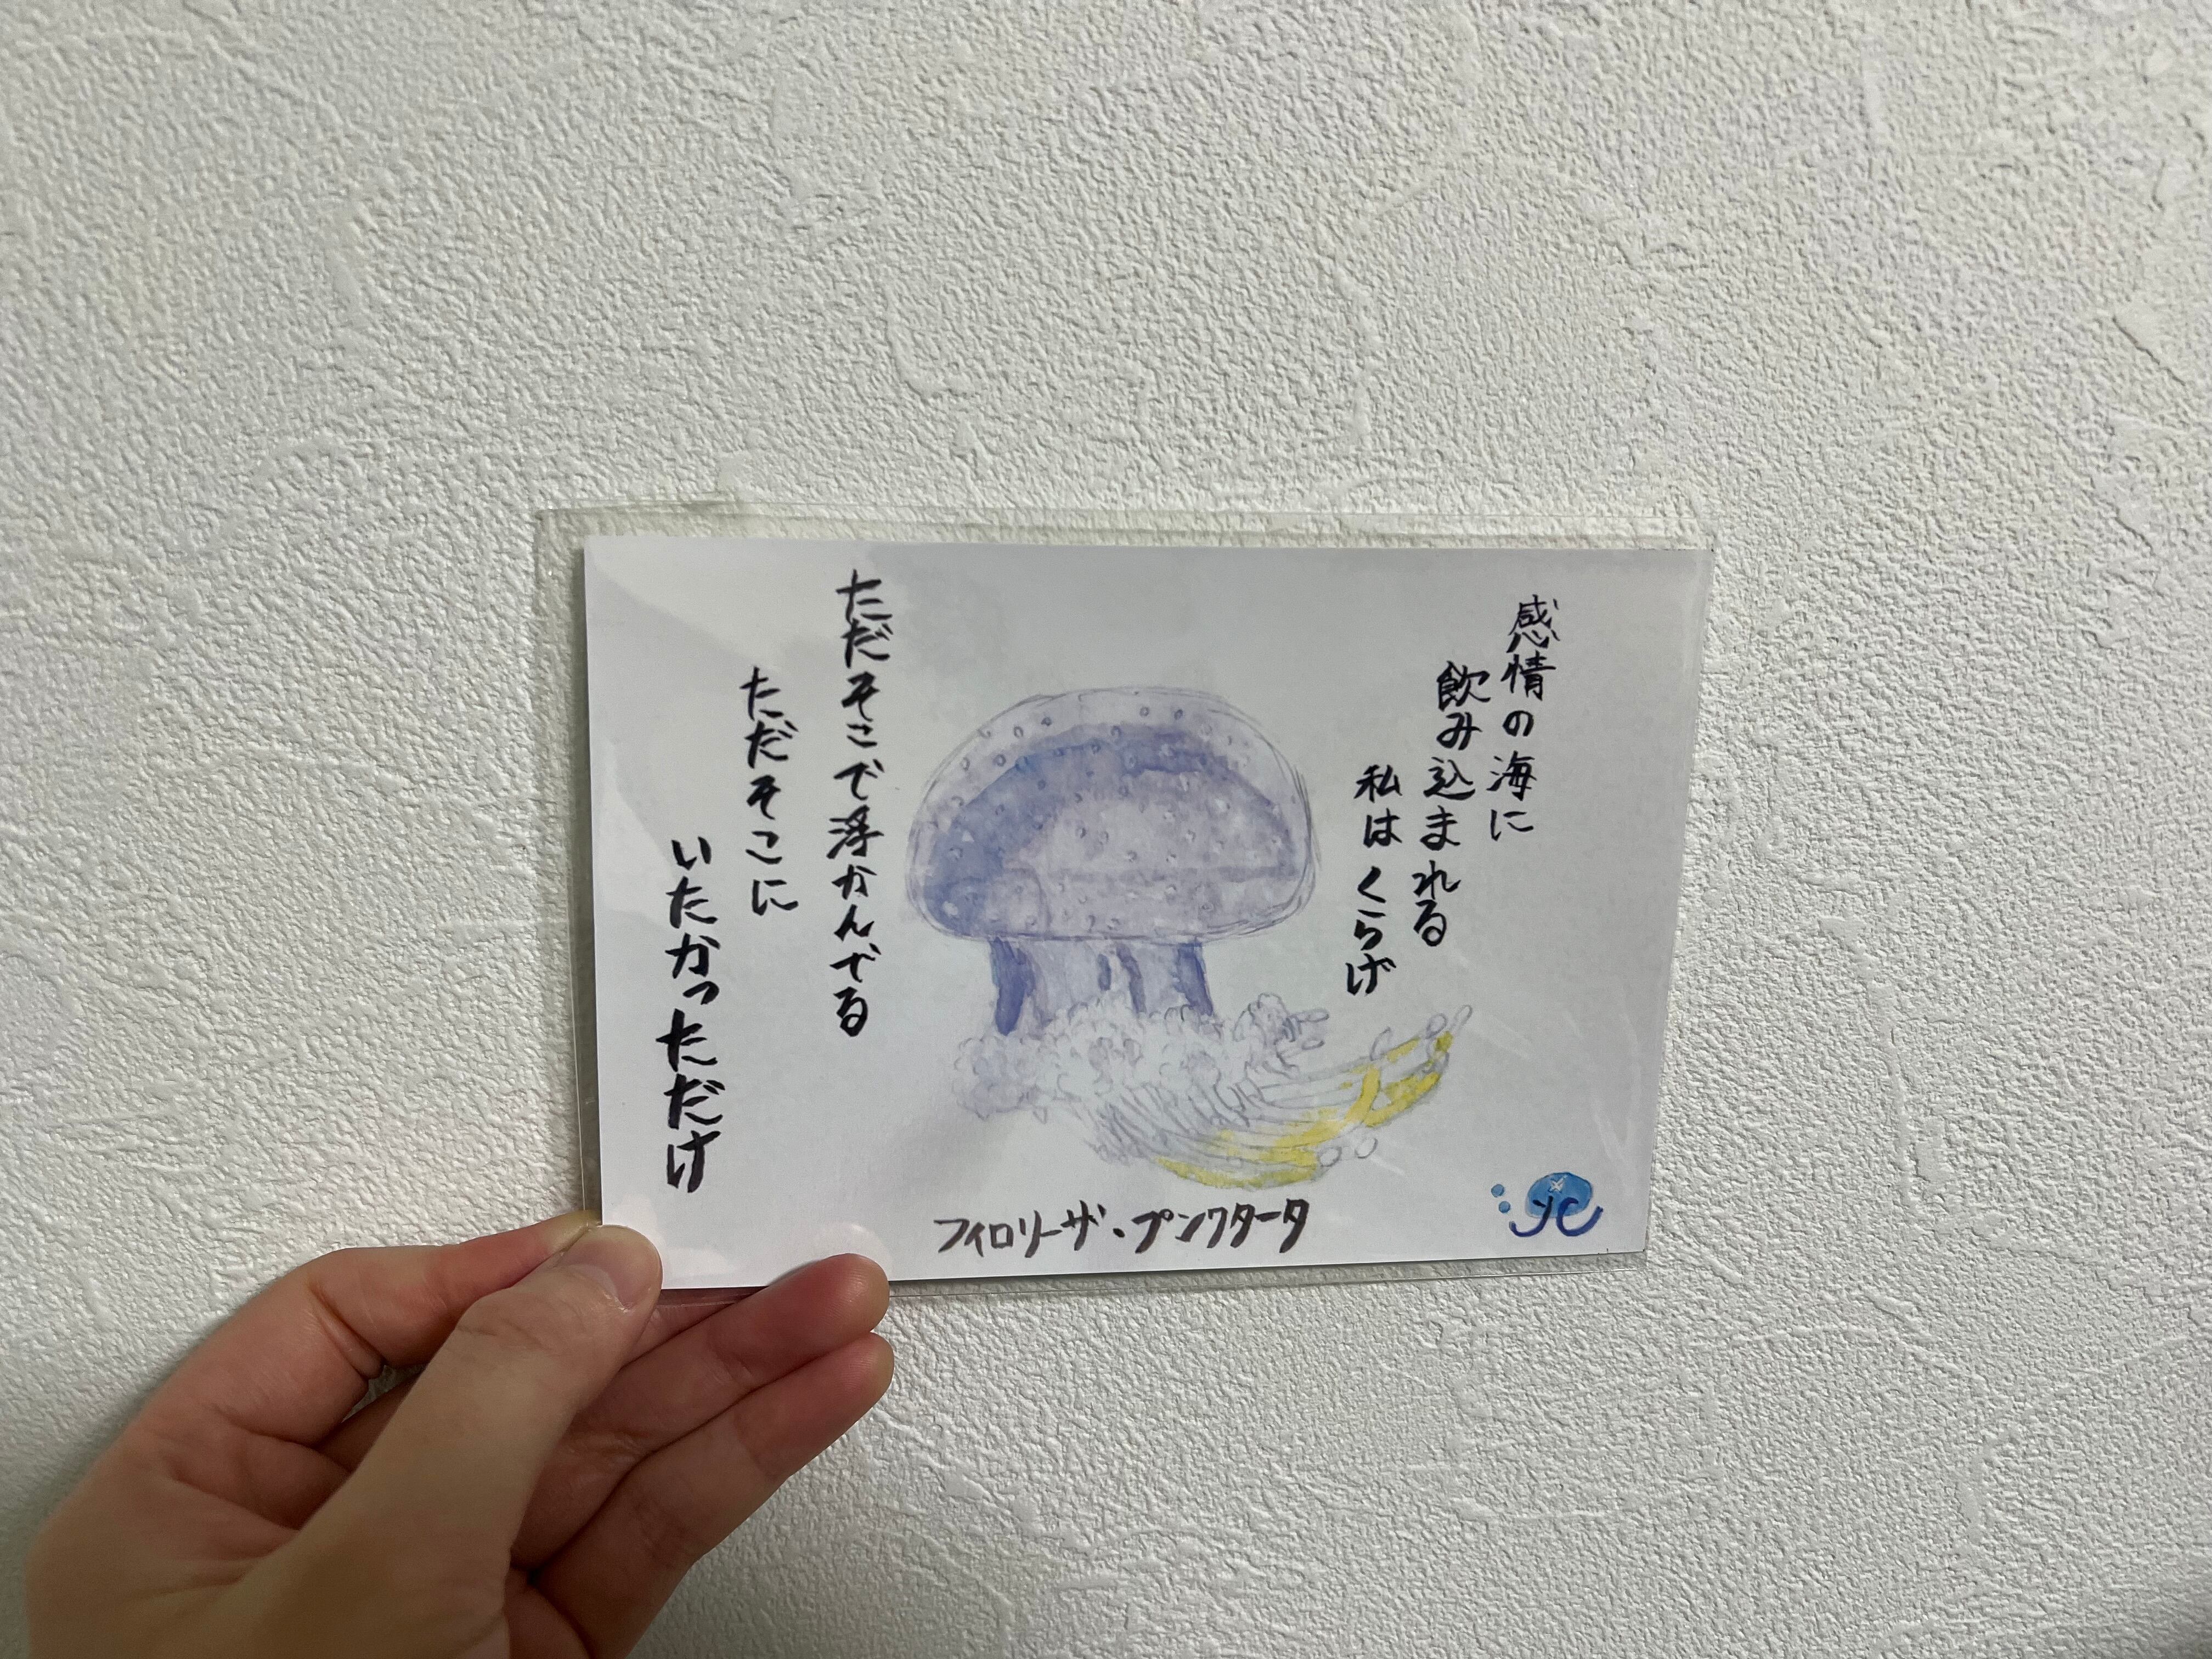 感情の海に
飲み込まれる
私はくらげ
ただそこで浮かんでる
ただそこに
いたかっただけ
フィロリーザ・プンクタータ